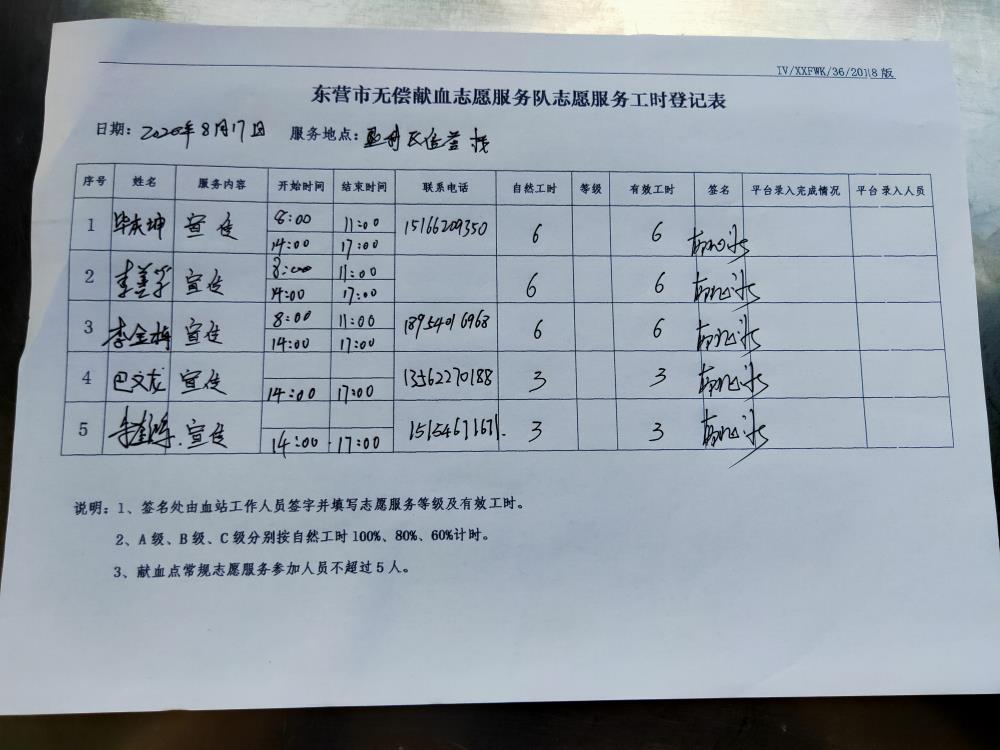 IV/XXFWK/36/2018版
东营市无偿献血志愿服务队志愿服务工时登记表
日期: 2020年8月17日 服务地点:
序号 姓名 服务内容 开始时间 结束时间 联系电话 自然工时 等级 有效工时 签名 平台录入完成情况 平台录入人员
1 毕庆坤 宣传 8:00 11:00 15166209350 6 6
14:00 17:00
2 李美学 宣传 8:00 11:00 6 6
14:00 17:00
3 李金梅 宣传 8:00 11:00 18954016968 6 6
14:00 17:00
4 巴文龙 宣传 14:00 17:00 13562270188 3 3
5 宣传 14:00 17:00 15154671671. 3 3
说明: 1、签名处由血站工作人员签字并填写志愿服务等级及有效工时。
2、A级、B级、C级分别按自然工时100%、80%、60%计时。
3、献血点常规志愿服务参加人员不超过5人。